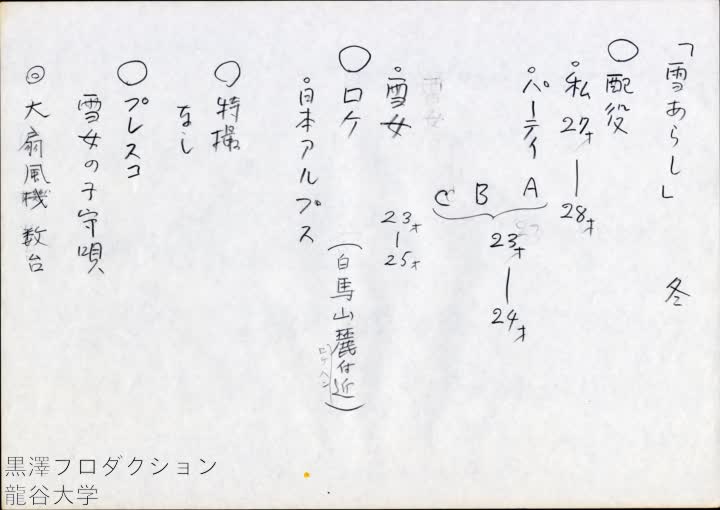 「雪あらし」 冬
○配役
・私 27才 ― 28才
・パーティ A B C 23才 ― 24才
・雪女 23才 ― 25才
○ロケ
(白馬山麓付近)
ロケヘン
・日本アルプス
○特撮
なし
○プレスコ
雪女の子守唄
◎大扇風機 数台
黒澤プロダクション
龍谷大学